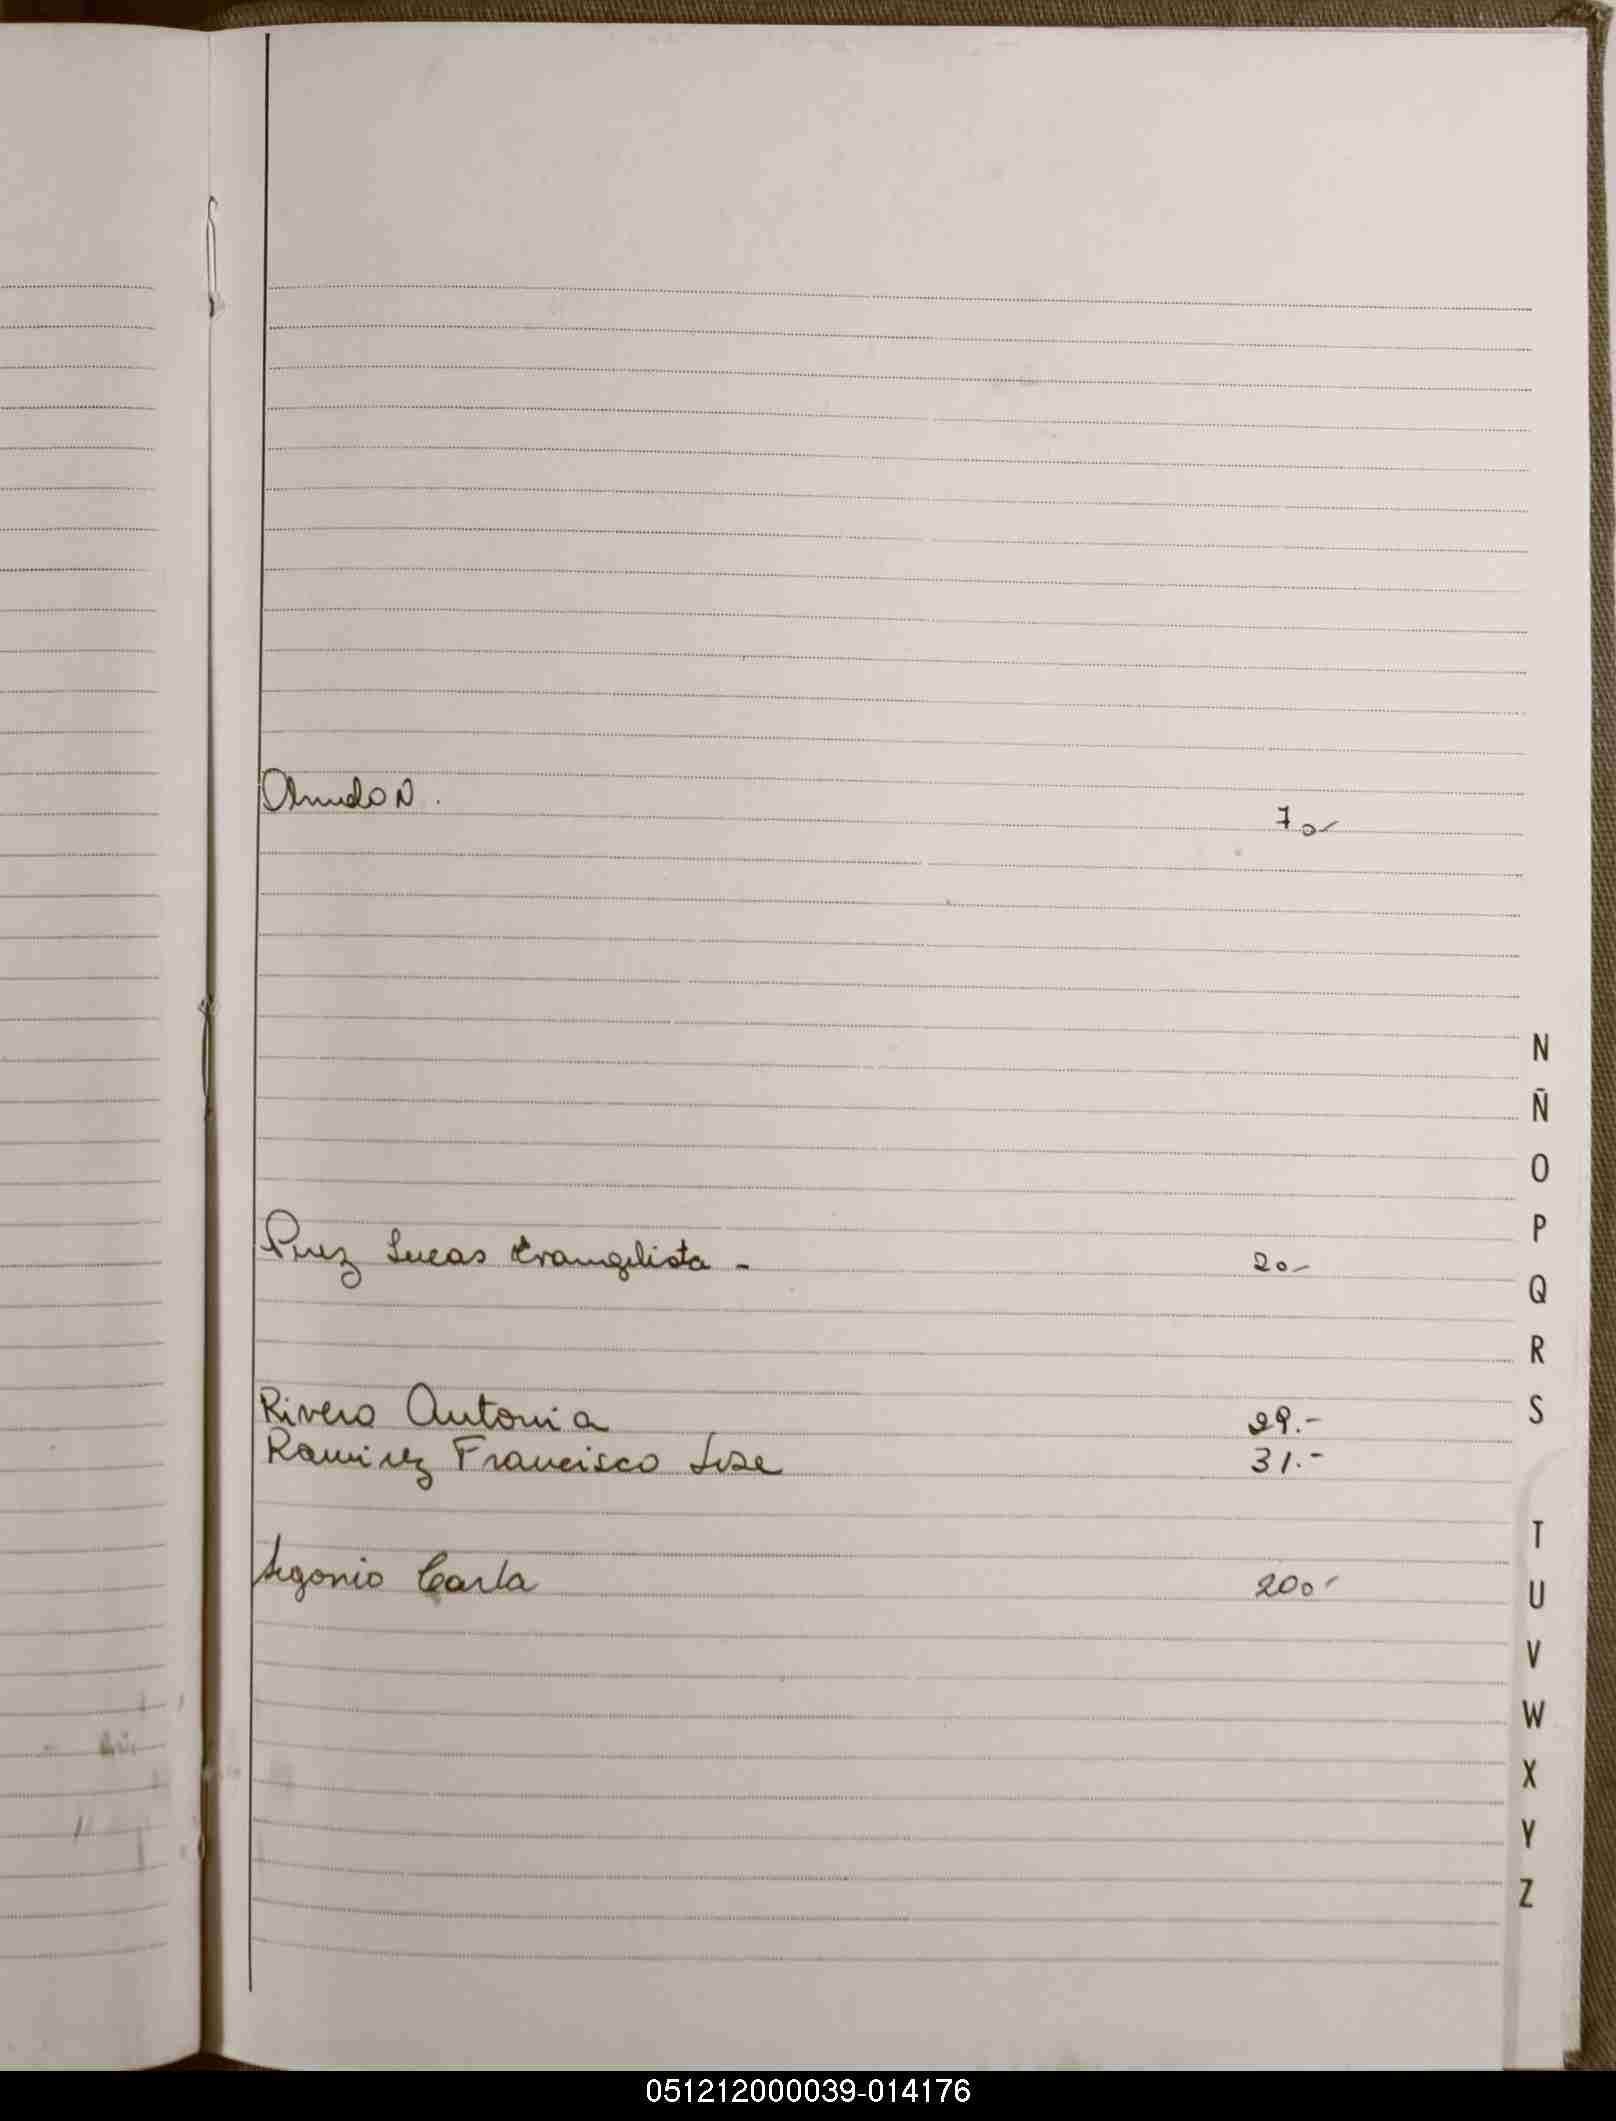 Olmedo N. 70-
N
Ñ
O
P
Perez Lucas Evangelista - 20-
Q
R
Rivero Antonia 29.-
S
Ramirez Francisco Jose 31.-
T
Segonio Carla 200-
U
V
W
X
Y
Z
051212000039-014176